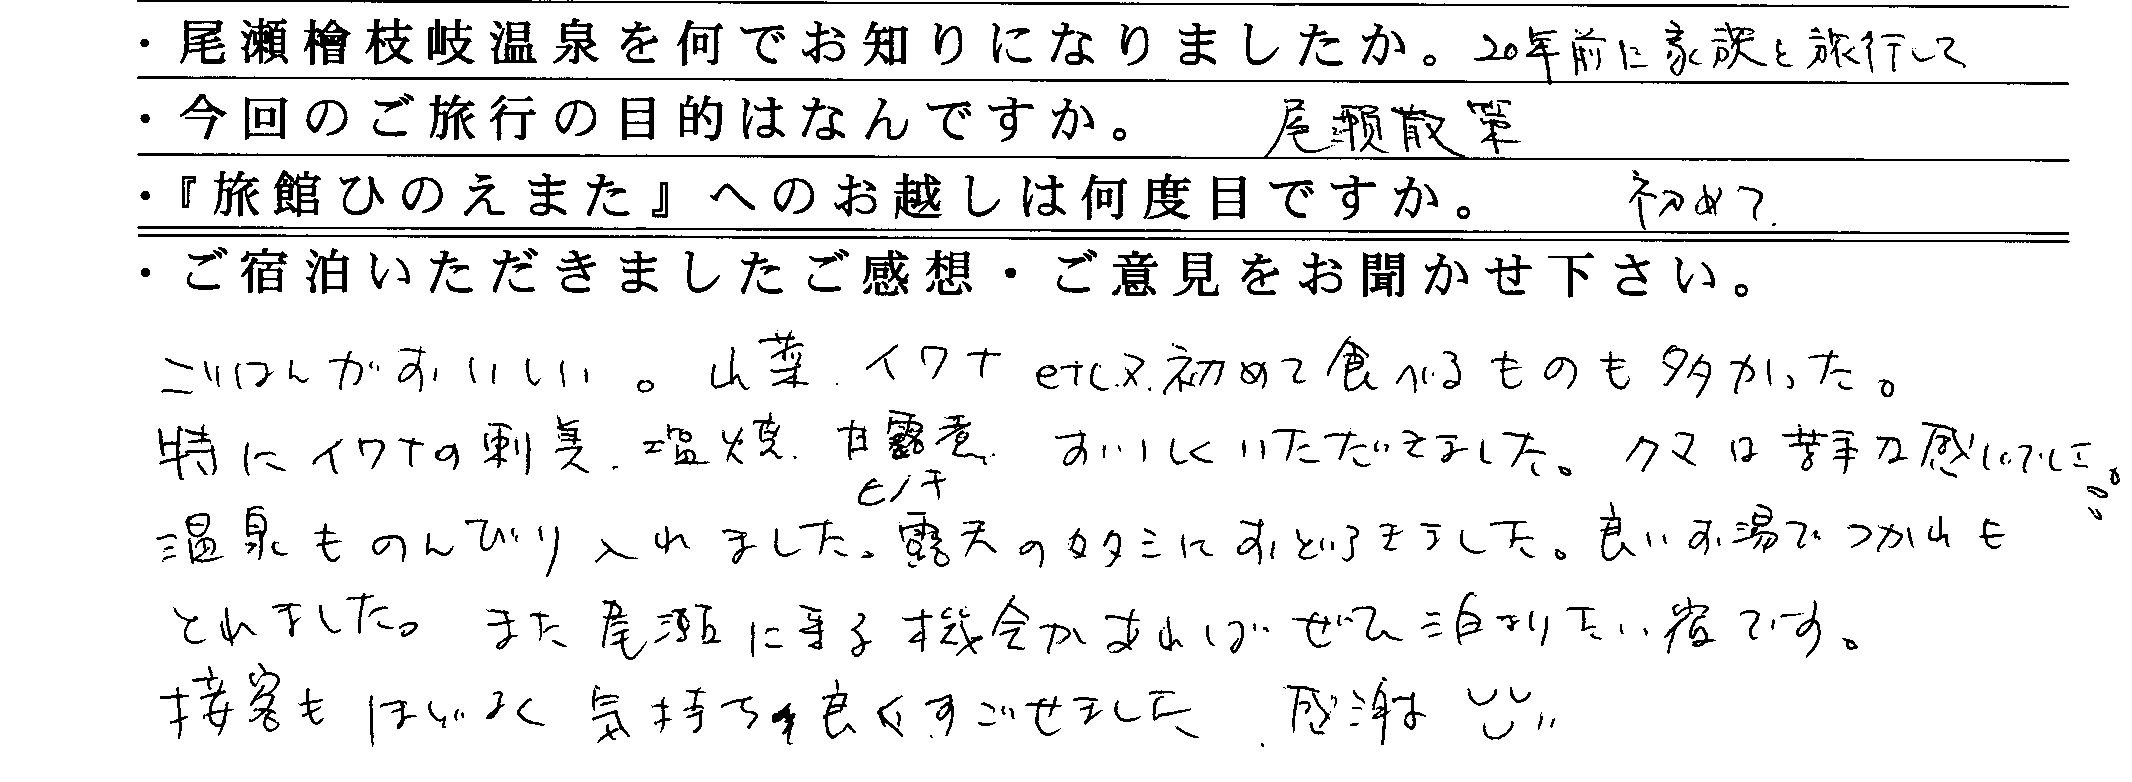 ・尾瀬檜枝岐温泉を何でお知りになりましたか。 20年前に家族と旅行して
・今回のご旅行の目的はなんですか。 尾瀬散策
・『旅館ひのえまた』へのお越しは何度目ですか。 初めて.
・ご宿泊いただきましたご感想・ご意見をお聞かせ下さい。
ごはんがおいしい。山菜.イワナ etc.又.初めて食べるものも多かった。
特にイワナの刺身.塩焼.甘露煮.おいしくいただきました。クマは苦手な感じでした。
ヒノキ
温泉ものんびり入れました。露天のタタミにおどろきました。良いお湯でつかれも
とれました。また尾瀬に来る機会があればぜひ泊まりたい宿です。
接客もほどよく気持ち良くすごせました.感謝